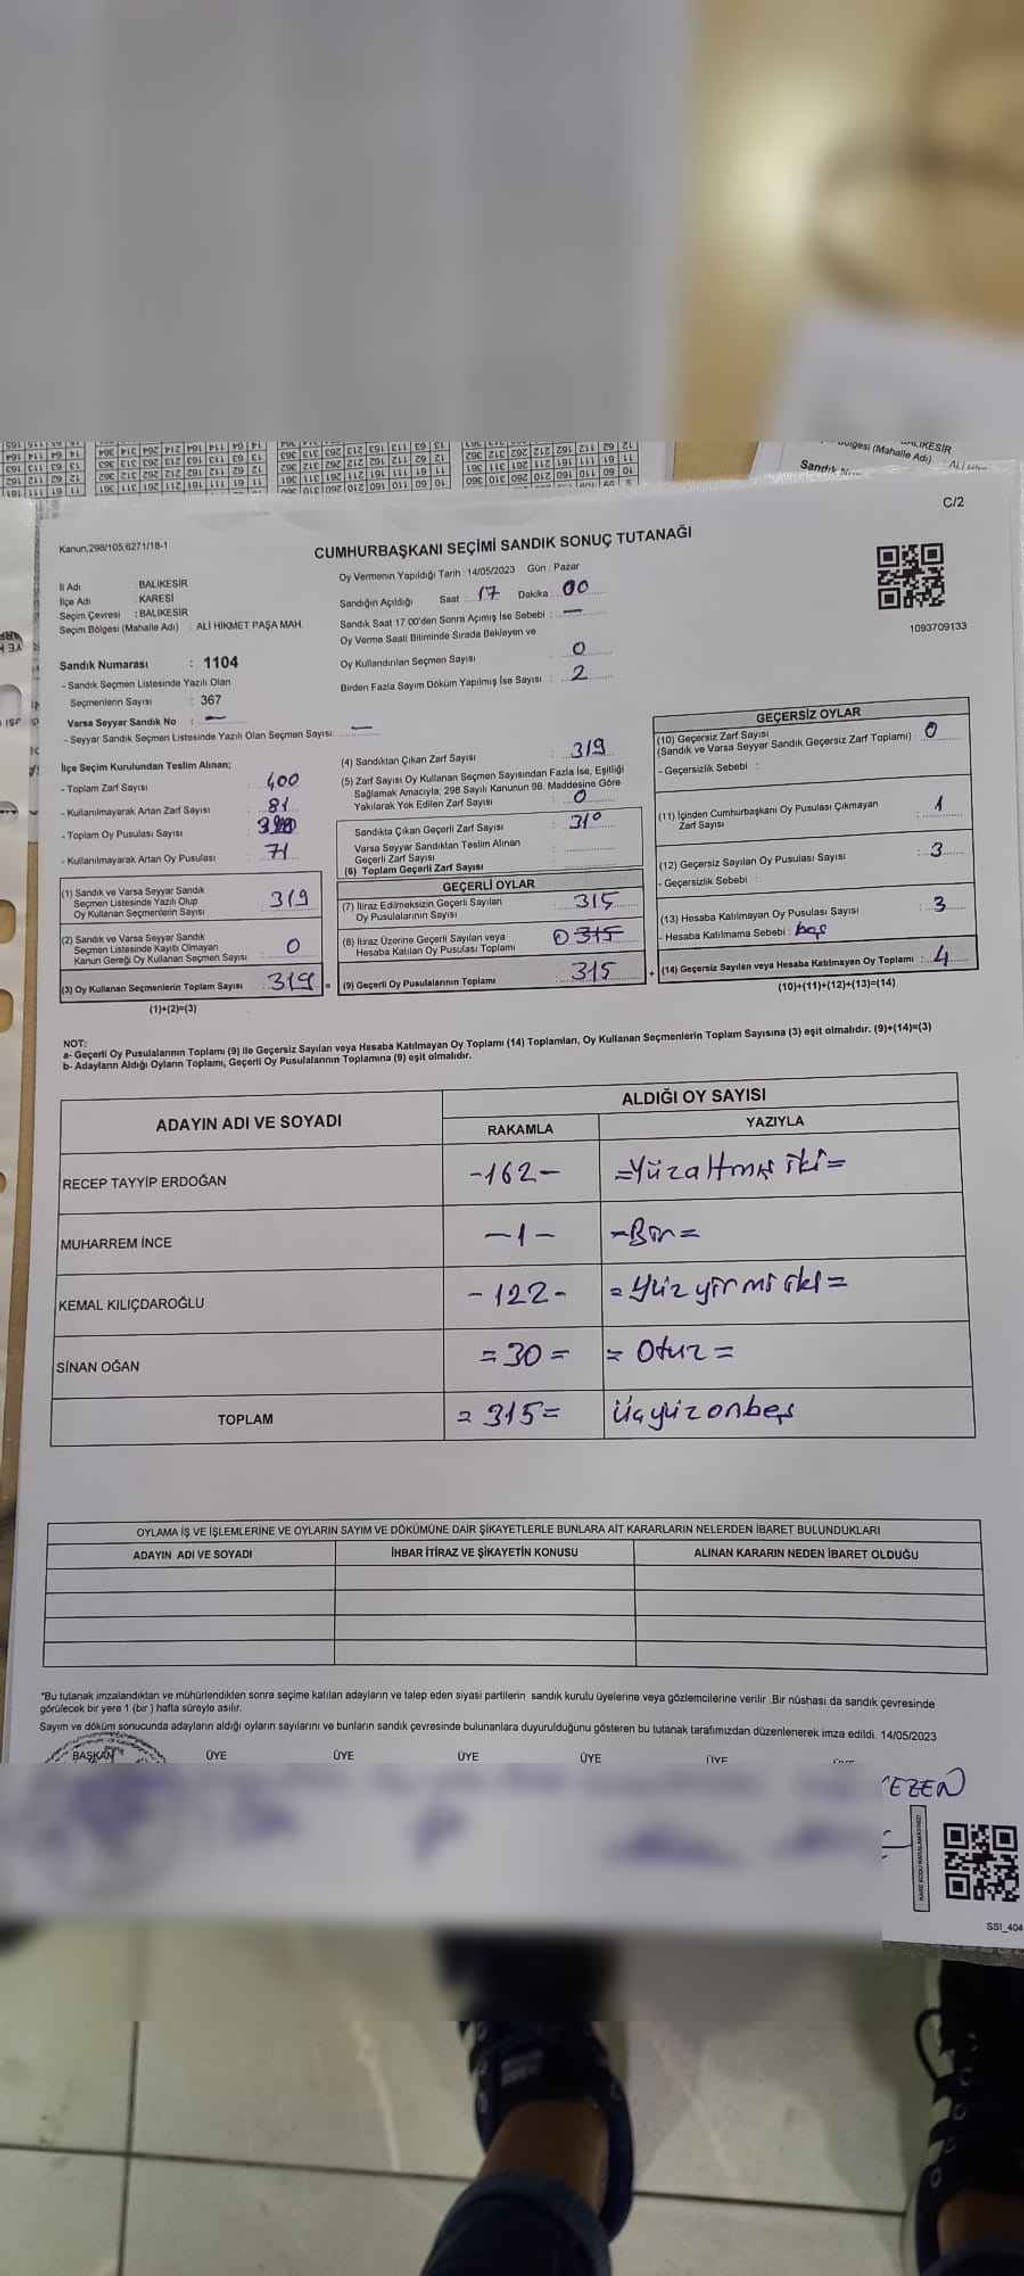 C/2
Kanun,298/105,6271/18-1
CUMHURBAŞKANI SEÇİMİ SANDIK SONUÇ TUTANAĞI
İl Adı : BALIKESİR
İlçe Adı : KARESİ
Seçim Çevresi : BALIKESİR
Seçim Bölgesi (Mahalle Adı) : ALİ HİKMET PAŞA MAH.
Oy Vermenin Yapıldığı Tarih : 14/05/2023 Gün : Pazar
Sandığın Açıldığı Saat : 17 Dakika : 00
Sandık Saat 17.00'den Sonra Açmış İse Sebebi : —
Oy Verme Saati Bitiminde Sırada Bekleyen ve
Oy Kullandırılan Seçmen Sayısı : 0
Birden Fazla Sayım Döküm Yapılmış İse Sayısı : 2
1093709133
Sandık Numarası : 1104
- Sandık Seçmen Listesinde Yazılı Olan
Seçmenlerin Sayısı : 367
Varsa Seyyar Sandık No : —
- Seyyar Sandık Seçmen Listesinde Yazılı Olan Seçmen Sayısı : —
İlçe Seçim Kurulundan Teslim Alınan;
- Toplam Zarf Sayısı : 400
- Kullanılmayarak Artan Zarf Sayısı : 81
- Toplam Oy Pusulası Sayısı :
- Kullanılmayarak Artan Oy Pusulası : 71
(1) Sandık ve Varsa Seyyar Sandık
Seçmen Listesinde Yazılı Olup
Oy Kullanan Seçmenlerin Sayısı : 319
(2) Sandık ve Varsa Seyyar Sandık
Seçmen Listesinde Kayıtlı Olmayan
Kanun Gereği Oy Kullanan Seçmen Sayısı : 0
(3) Oy Kullanan Seçmenlerin Toplam Sayısı : 319
(1)+(2)=(3)
(4) Sandıktan Çıkan Zarf Sayısı : 319
(5) Zarf Sayısı Oy Kullanan Seçmen Sayısından Fazla İse, Eşitliği
Sağlamak Amacıyla, 298 Sayılı Kanunun 98. Maddesine Göre
Yakılarak Yok Edilen Zarf Sayısı : 0
Sandıkta Çıkan Geçerli Zarf Sayısı :
Varsa Seyyar Sandıktan Teslim Alınan
Geçerli Zarf Sayısı :
(6) Toplam Geçerli Zarf Sayısı
GEÇERLİ OYLAR
(7) İtiraz Edilmeksizin Geçerli Sayılan
Oy Pusulalarının Sayısı : 315
(8) İtiraz Üzerine Geçerli Sayılan veya
Hesaba Katılan Oy Pusulası Toplamı : 0 315
(9) Geçerli Oy Pusulalarının Toplamı : 315
GEÇERSİZ OYLAR
(10) Geçersiz Zarf Sayısı
(Sandık ve Varsa Seyyar Sandık Geçersiz Zarf Toplamı) : 0
- Geçersizlik Sebebi :
(11) İçinden Cumhurbaşkanı Oy Pusulası Çıkmayan
Zarf Sayısı : 1
(12) Geçersiz Sayılan Oy Pusulası Sayısı : 3
- Geçersizlik Sebebi :
(13) Hesaba Katılmayan Oy Pusulası Sayısı : 3
- Hesaba Katılmama Sebebi : boş
(14) Geçersiz Sayılan veya Hesaba Katılmayan Oy Toplamı : 4
(10)+(11)+(12)+(13)=(14)
NOT:
a- Geçerli Oy Pusulalarının Toplamı (9) ile Geçersiz Sayılan veya Hesaba Katılmayan Oy Toplamı (14) Toplamları, Oy Kullanan Seçmenlerin Toplam Sayısına (3) eşit olmalıdır. (9)+(14)=(3)
b- Adayların Aldığı Oyların Toplamı, Geçerli Oy Pusulalarının Toplamına (9) eşit olmalıdır.
ADAYIN ADI VE SOYADI ALDIĞI OY SAYISI
RAKAMLA YAZIYLA
RECEP TAYYİP ERDOĞAN -162- =Yüzaltmış iki=
MUHARREM İNCE -1- -Bir=
KEMAL KILIÇDAROĞLU -122- =Yüz yirmi iki=
SİNAN OĞAN =30= = Otuz =
TOPLAM =315= Üçyüzonbeş
OYLAMA İŞ VE İŞLEMLERİNE VE OYLARIN SAYIM VE DÖKÜMÜNE DAİR ŞİKAYETLERLE BUNLARA AİT KARARLARIN NELERDEN İBARET BULUNDUKLARI
ADAYIN ADI VE SOYADI İHBAR İTİRAZ VE ŞİKAYETİN KONUSU ALINAN KARARIN NEDEN İBARET OLDUĞU
*Bu tutanak imzalandıktan ve mühürlendikten sonra seçime katılan adayların ve talep eden siyasi partilerin sandık kurulu üyelerine veya gözlemcilerine verilir. Bir nüshası da sandık çevresinde
görülecek bir yere 1 (bir) hafta süreyle asılır.
Sayım ve döküm sonucunda adayların aldığı oyların sayılarını ve bunların sandık çevresinde bulunanlara duyurulduğunu gösteren bu tutanak tarafımızdan düzenlenerek imza edildi. 14/05/2023
BAŞKAN ÜYE ÜYE ÜYE ÜYE ÜYE
EZEN
SS1_404